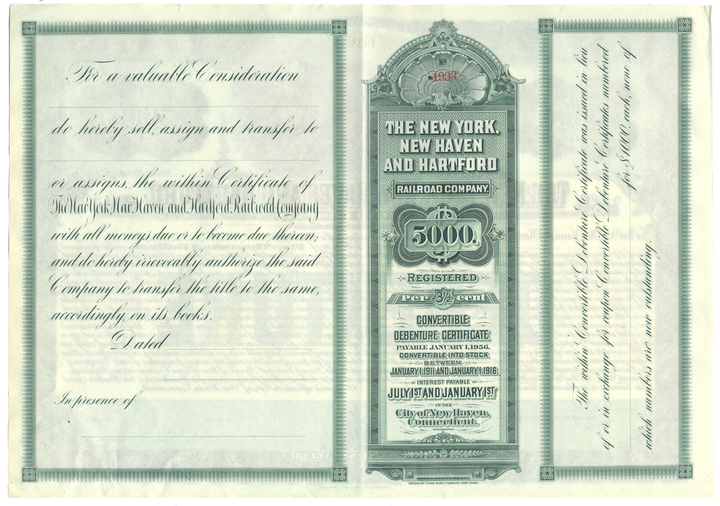 For a valuable Consideration
do hereby sell, assign and transfer to
or assigns, the within Certificate of
The New York New Haven and Hartford Railroad Company
with all moneys due or to become due thereon;
and do hereby irrevocably authorize the said
Company to transfer the title to the same,
accordingly, on its books.
Dated
In presence of
No
1933
THE NEW YORK,
NEW HAVEN
AND HARTFORD
RAILROAD COMPANY.
$
5000.
REGISTERED
Per 3½ cent
CONVERTIBLE
DEBENTURE CERTIFICATE
PAYABLE JANUARY 1, 1956.
CONVERTIBLE INTO STOCK
BETWEEN
JANUARY 1, 1911 AND JANUARY 1, 1916.
INTEREST PAYABLE
JULY 1ST AND JANUARY 1ST
IN THE
City of New Haven,
Connecticut.
The within Convertible Debenture Certificate was issued in lieu
of or in exchange for coupon Convertible Debenture Certificates numbered
for $1000. each, none of
which numbers are now outstanding.